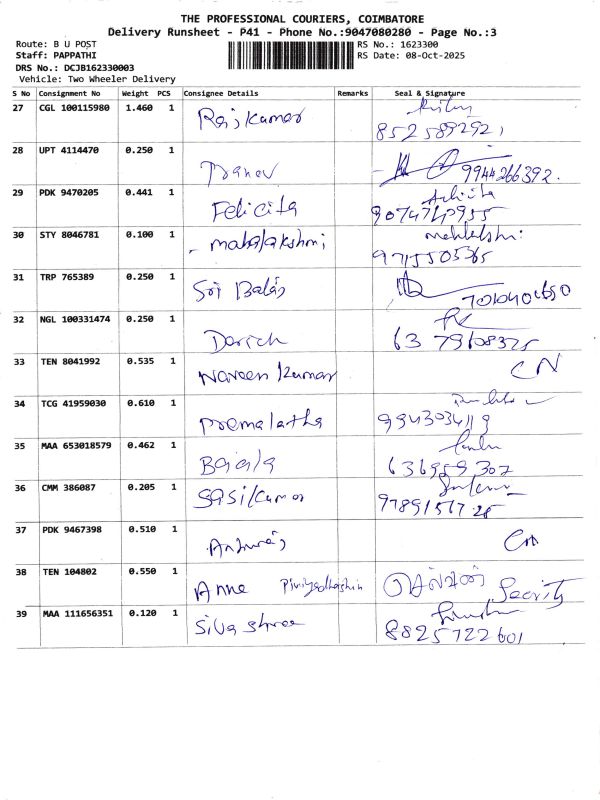 THE PROFESSIONAL COURIERS, COIMBATORE
Delivery Runsheet - P41 - Phone No.:9047080280 - Page No.:3
Route: B U POST RS No.: 1623300
Staff: PAPPATHI RS Date: 08-Oct-2025
DRS No.: DCJB162330003
Vehicle: Two Wheeler Delivery
S No Consignment No Weight PCS Consignee Details Remarks Seal & Signature
27 CGL 100115980 1.460 1 Rajkumar
8525892921
28 UPT 4114470 0.250 1 Pranev 9944266392.
29 PDK 9470205 0.441 1 Felicita
30 STY 8046781 0.100 1 mahalakshmi
9715505365
31 TRP 765389 0.250 1 Sri Balaj
32 NGL 100331474 0.250 1
33 TEN 8041992 0.535 1 Naveen Kumar CN
34 TCG 41959030 0.610 1 Premalatha
9943034119
35 MAA 653018579 0.462 1
636959307
36 CMM 386087 0.205 1 Sasikumar
37 PDK 9467398 0.510 1
38 TEN 104802 0.550 1 Anne
39 MAA 111656351 0.120 1 Sivashree
8825722601